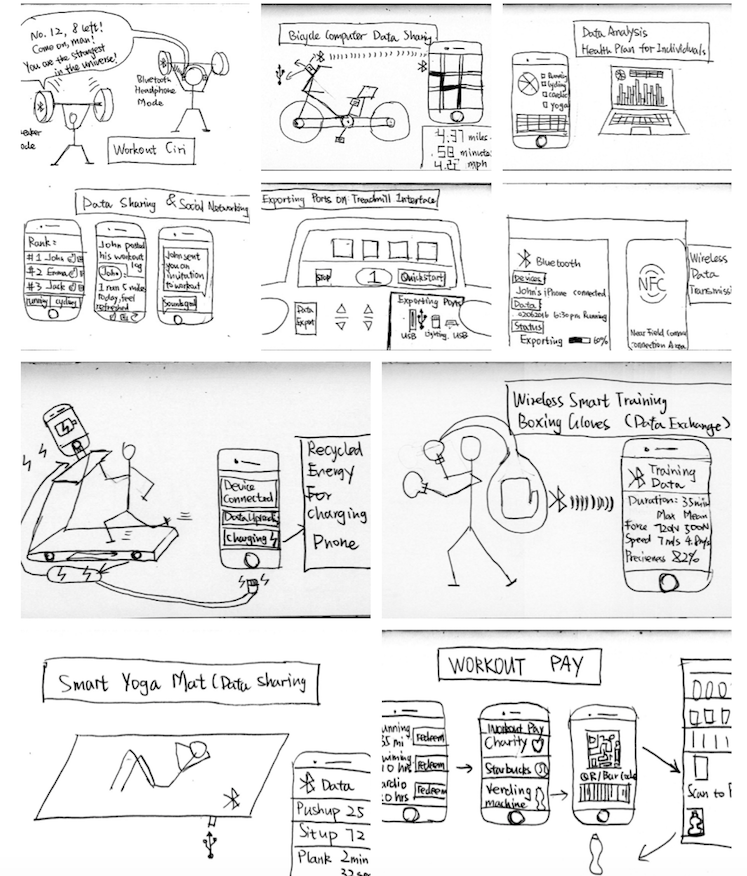 No. 12, 8 left!
Come on, man!
You are the strongest
in the universe!
Bluetooth
Headphone
Mode
Workout Ciri
Bicycle Computer Data Sharing
4.37 miles
.58 minutes
mph
Data Analysis
Health Plan for Individuals
Running
Cycling
Cardio
yoga
Data Sharing & Social Networking
Rank:
#1 John
#2 Emma
#3 Jack
running cycling
John posted
his workout
log
John:
I ran 5 miles
today, feel
refreshed
John sent
you an
invitation
to workout
Sounds good
Exporting Ports on Treadmill Interface
Stop
1
Quickstart
Data
Export
Exporting Ports
USB
Lighting
USB
Bluetooth
Devices:
John's iPhone connected
Data:
02062016 6:30pm Running
Status
Exporting 60%
NFC
Near Field Commu
Connection Area
Wireless
Data
Transmissi
Device
Connected
Data Uploading
Charging
Recycled
Energy
For
Charging
Phone
Wireless Smart Training
Boxing Gloves (Data Exchange)
Training
Data
Duration: 35min
Max Mean
Force 720N 500N
Speed 7m/s
Preciseness 82%
Smart Yoga Mat (Data Sharing
Data
Pushup 25
Situp 72
Plank 2min
WORKOUT PAY
unning
35 mi
Redeem
wiming
10 hrs
Redeem
ardio
0 hrs
Redeem
Workout Pay
Charity
Starbucks
Vending
machine
QR/Bar Code
Scan to P